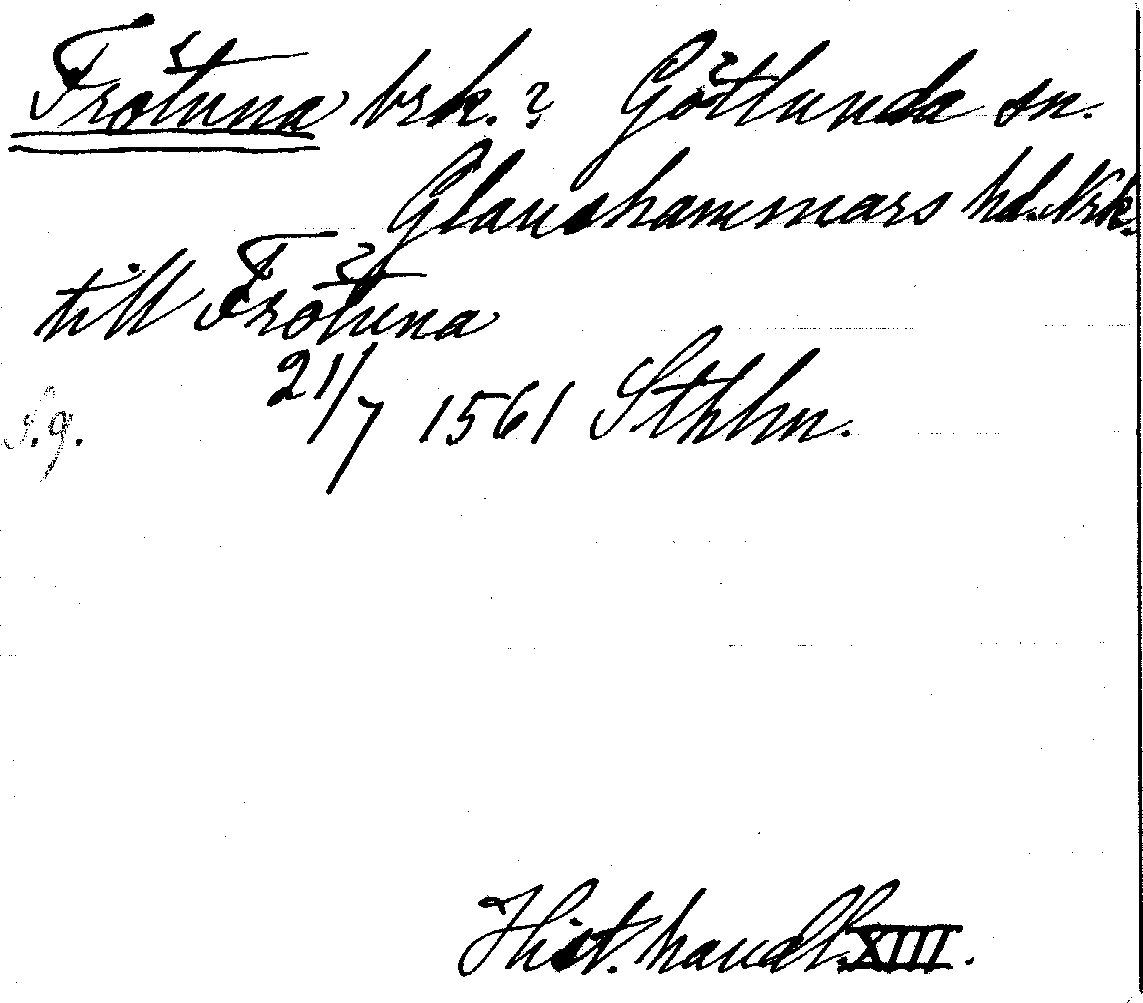 Frötuna brk.? Götlunda sn.
Glanshammars hd. Nrk.
till Frötuna
21/7 1561 Sthlm.
S.g.
Hist. handl. XIII.